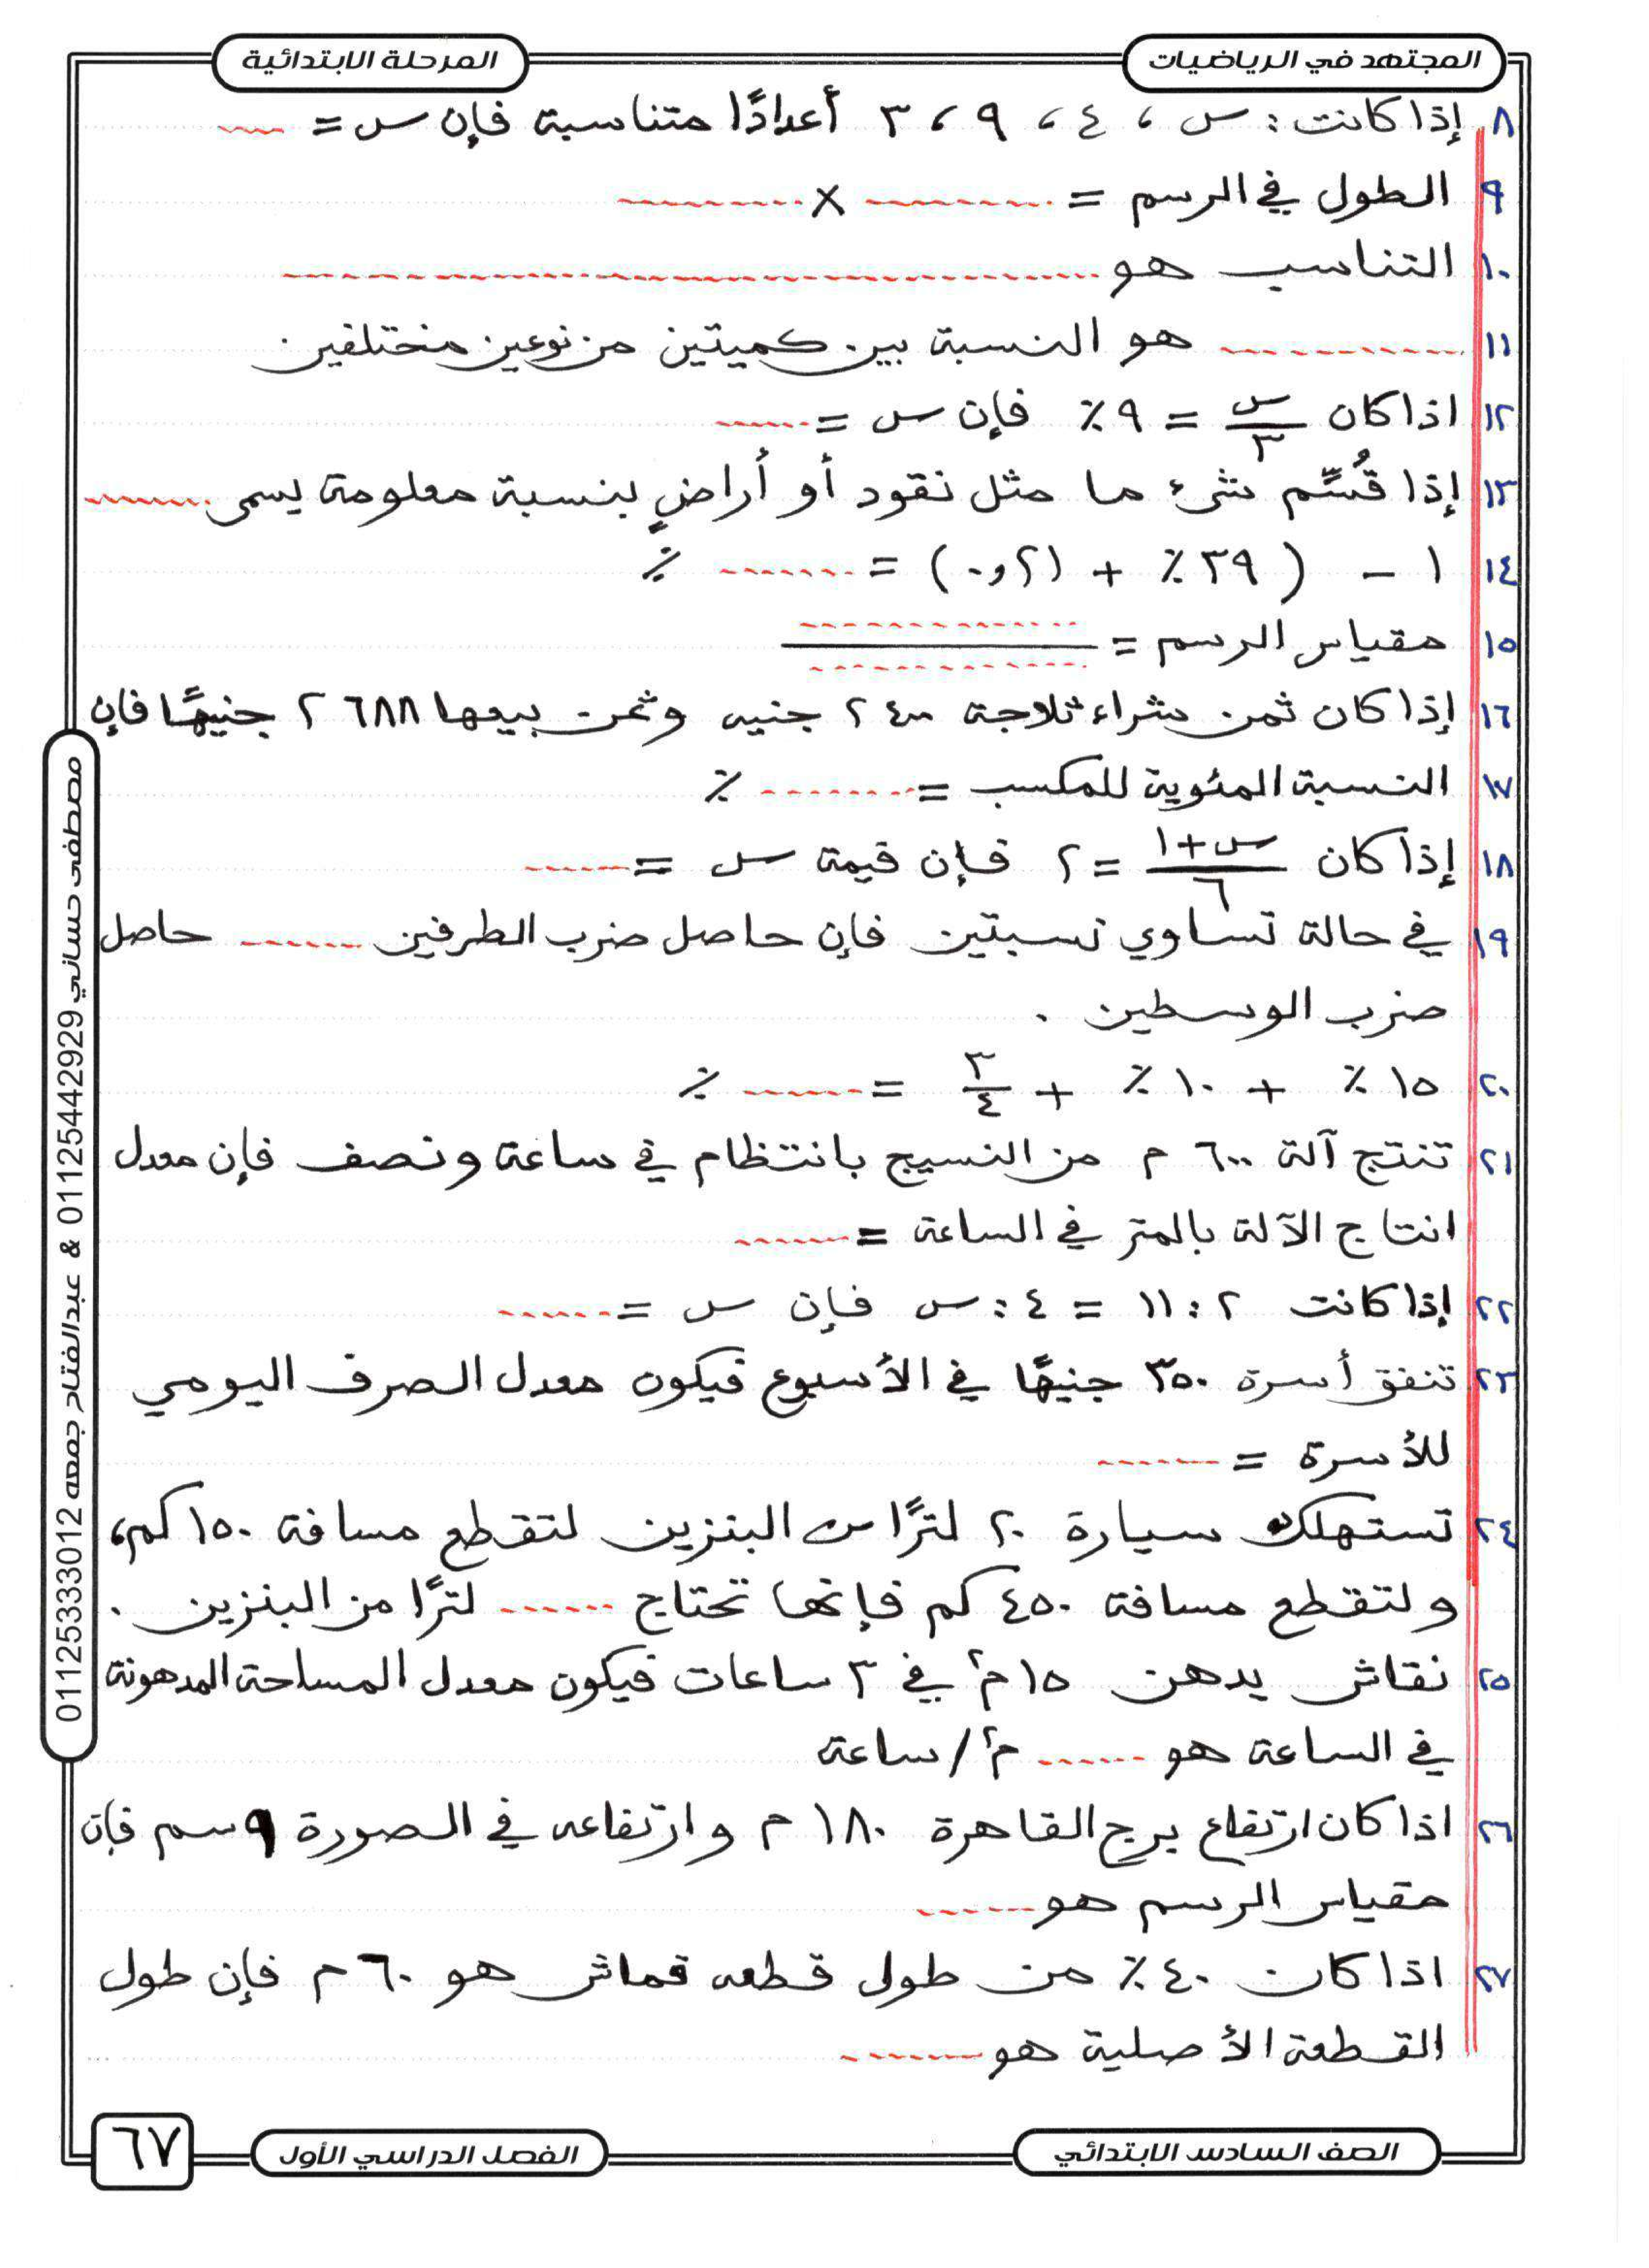 المجتهد في الرياضيات
المرحلة الابتدائية
٨ إذا كانت : س ، ٤ ، ٩ ، ٣ أعدادًا متناسبة فإن س = ......
٩ الطول في الرسم = .......... × ..........
١٠ التناسب هو ..............................
١١ .............. هو النسبة بين كميتين من نوعين مختلفين
١٢ اذا كان س/٣ = ٩٪ فإن س = ......
١٣ إذا قُسِّم شئ ما مثل نقود أو أراضٍ بنسبة معلومة يسمى ........
١٤ ١ - ( ٣٩٪ + ٠,٢١ ) = ........ ٪
١٥ مقياس الرسم = .............. / ..............
١٦ إذا كان ثمن شراء ثلاجة ٢٤٠٠ جنيه وثمن بيعها ٢٦٨٨ جنيهًا فإن
١٧ النسبة المئوية للمكسب = .......... ٪
١٨ إذا كان س+١/٦ = ٢ فإن قيمة س = .......
١٩ في حالة تساوي نسبتين فإن حاصل ضرب الطرفين ........ حاصل
ضرب الوسطين .
٢٠ ١٥٪ + ١٠٪ + ٣/٤ = ........ ٪
٢١ تنتج آلة ٦٠٠ م من النسيج بانتظام في ساعة ونصف فإن معدل
انتاج الآلة بالمتر في الساعة = ........
٢٢ إذا كانت ٢ : ١١ = ٤ : س فإن س = .......
٢٣ تنفق أسرة ٣٥٠ جنيهًا في الأسبوع فيكون معدل الصرف اليومي
للأسرة = ........
٢٤ تستهلك سيارة ٢٠ لترًا من البنزين لتقطع مسافة ١٥٠ كم،
ولتقطع مسافة ٤٥٠ كم فإنها تحتاج ....... لترًا من البنزين .
٢٥ نقاش يدهن ١٥ م٢ في ٣ ساعات فيكون معدل المساحة المدهونة
في الساعة هو ....... م٢ / ساعة
٢٦ اذا كان ارتفاع برج القاهرة ١٨٠ م وارتفاعه في الصورة ٩ سم فإن
مقياس الرسم هو .......
٢٧ اذا كان ٤٠٪ من طول قطعه قماش هو ٦٠ م فإن طول
القطعة الأصلية هو .........
مصطفى حساني 01125442929 & عبدالفتاح جمعه 01125333012
الصف السادس الابتدائي
الفصل الدراسي الأول
٦٧